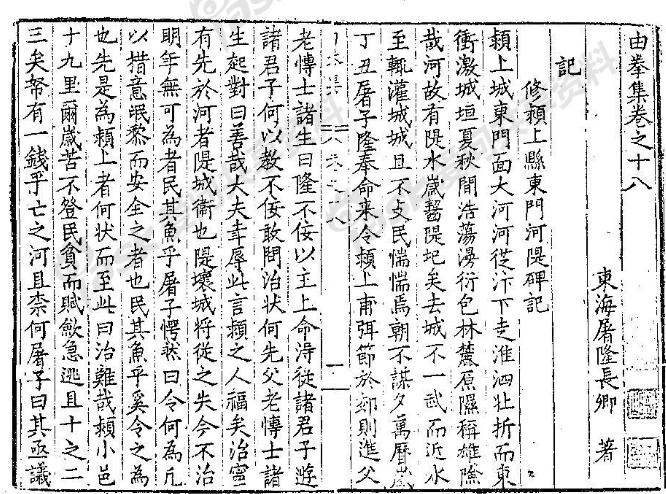 由拳集卷之十八
東海屠隆長卿著
記
修頴上縣東門河隄碑記
頴上城東門面大河河從汴下走淮泗壯折而東
衝激城垣夏秋間浩蕩漫衍包林麓原隰稱雄險
哉河故有隄水嵗齧隄圮矣去城不一武而近水
至輒灌城城且不支民惴惴焉朝不謀夕萬曆嵗
丁丑屠子隆奉命来令頴上甫弭節於郊則進父
老博士諸生曰隆不佞以主上命淂從諸君子遊
諸君子何以教不佞敢問治狀何先父老博士諸
生起對曰善哉大夫幸辱此言頴之人福矣治寧
有先於河者隄城衛也隄壞城将從之失今不治
明年無可為者民其魚乎屠子愕然曰令何為凢
以措意氓黎而安全之者也民其魚乎奚令之為
也先是為頴上者何状而至此曰治難哉頴小邑
十九里爾嵗苦不登民貧而賦歛急逃且十之二
三矣帑有一錢乎亡之河且柰何屠子曰其亟議